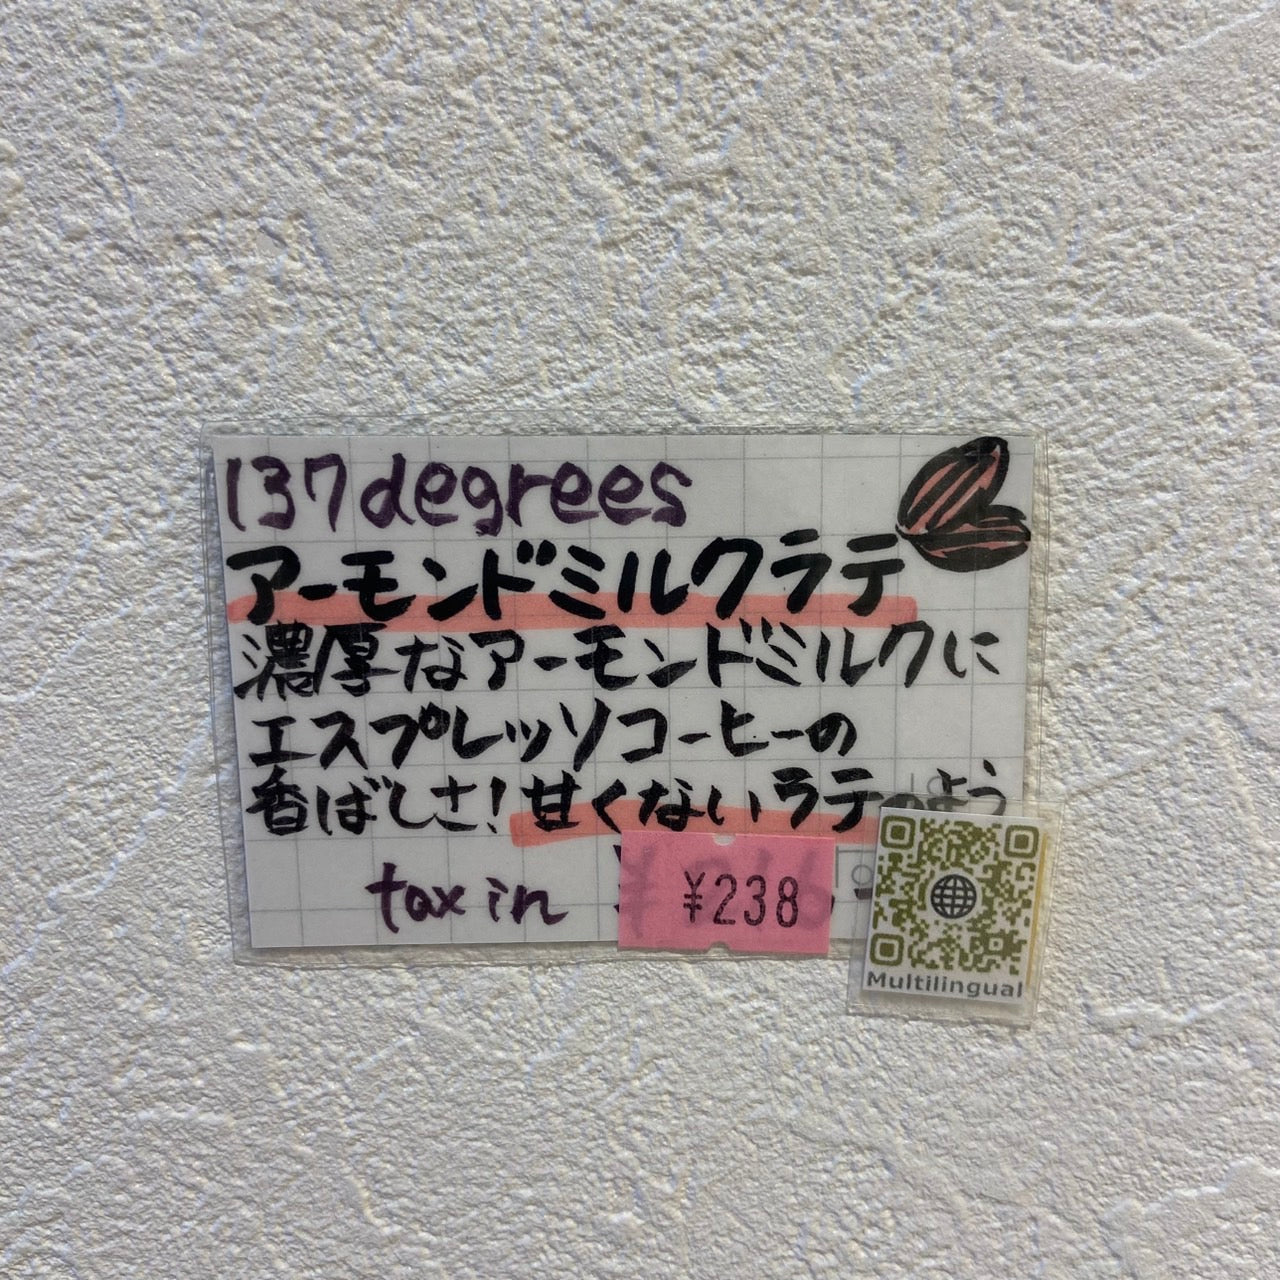 137degrees
アーモンドミルクラテ
濃厚なアーモンドミルクに
エスプレッソコーヒーの
香ばしさ!甘くないラテのよう
tax in ¥238
Multilingual